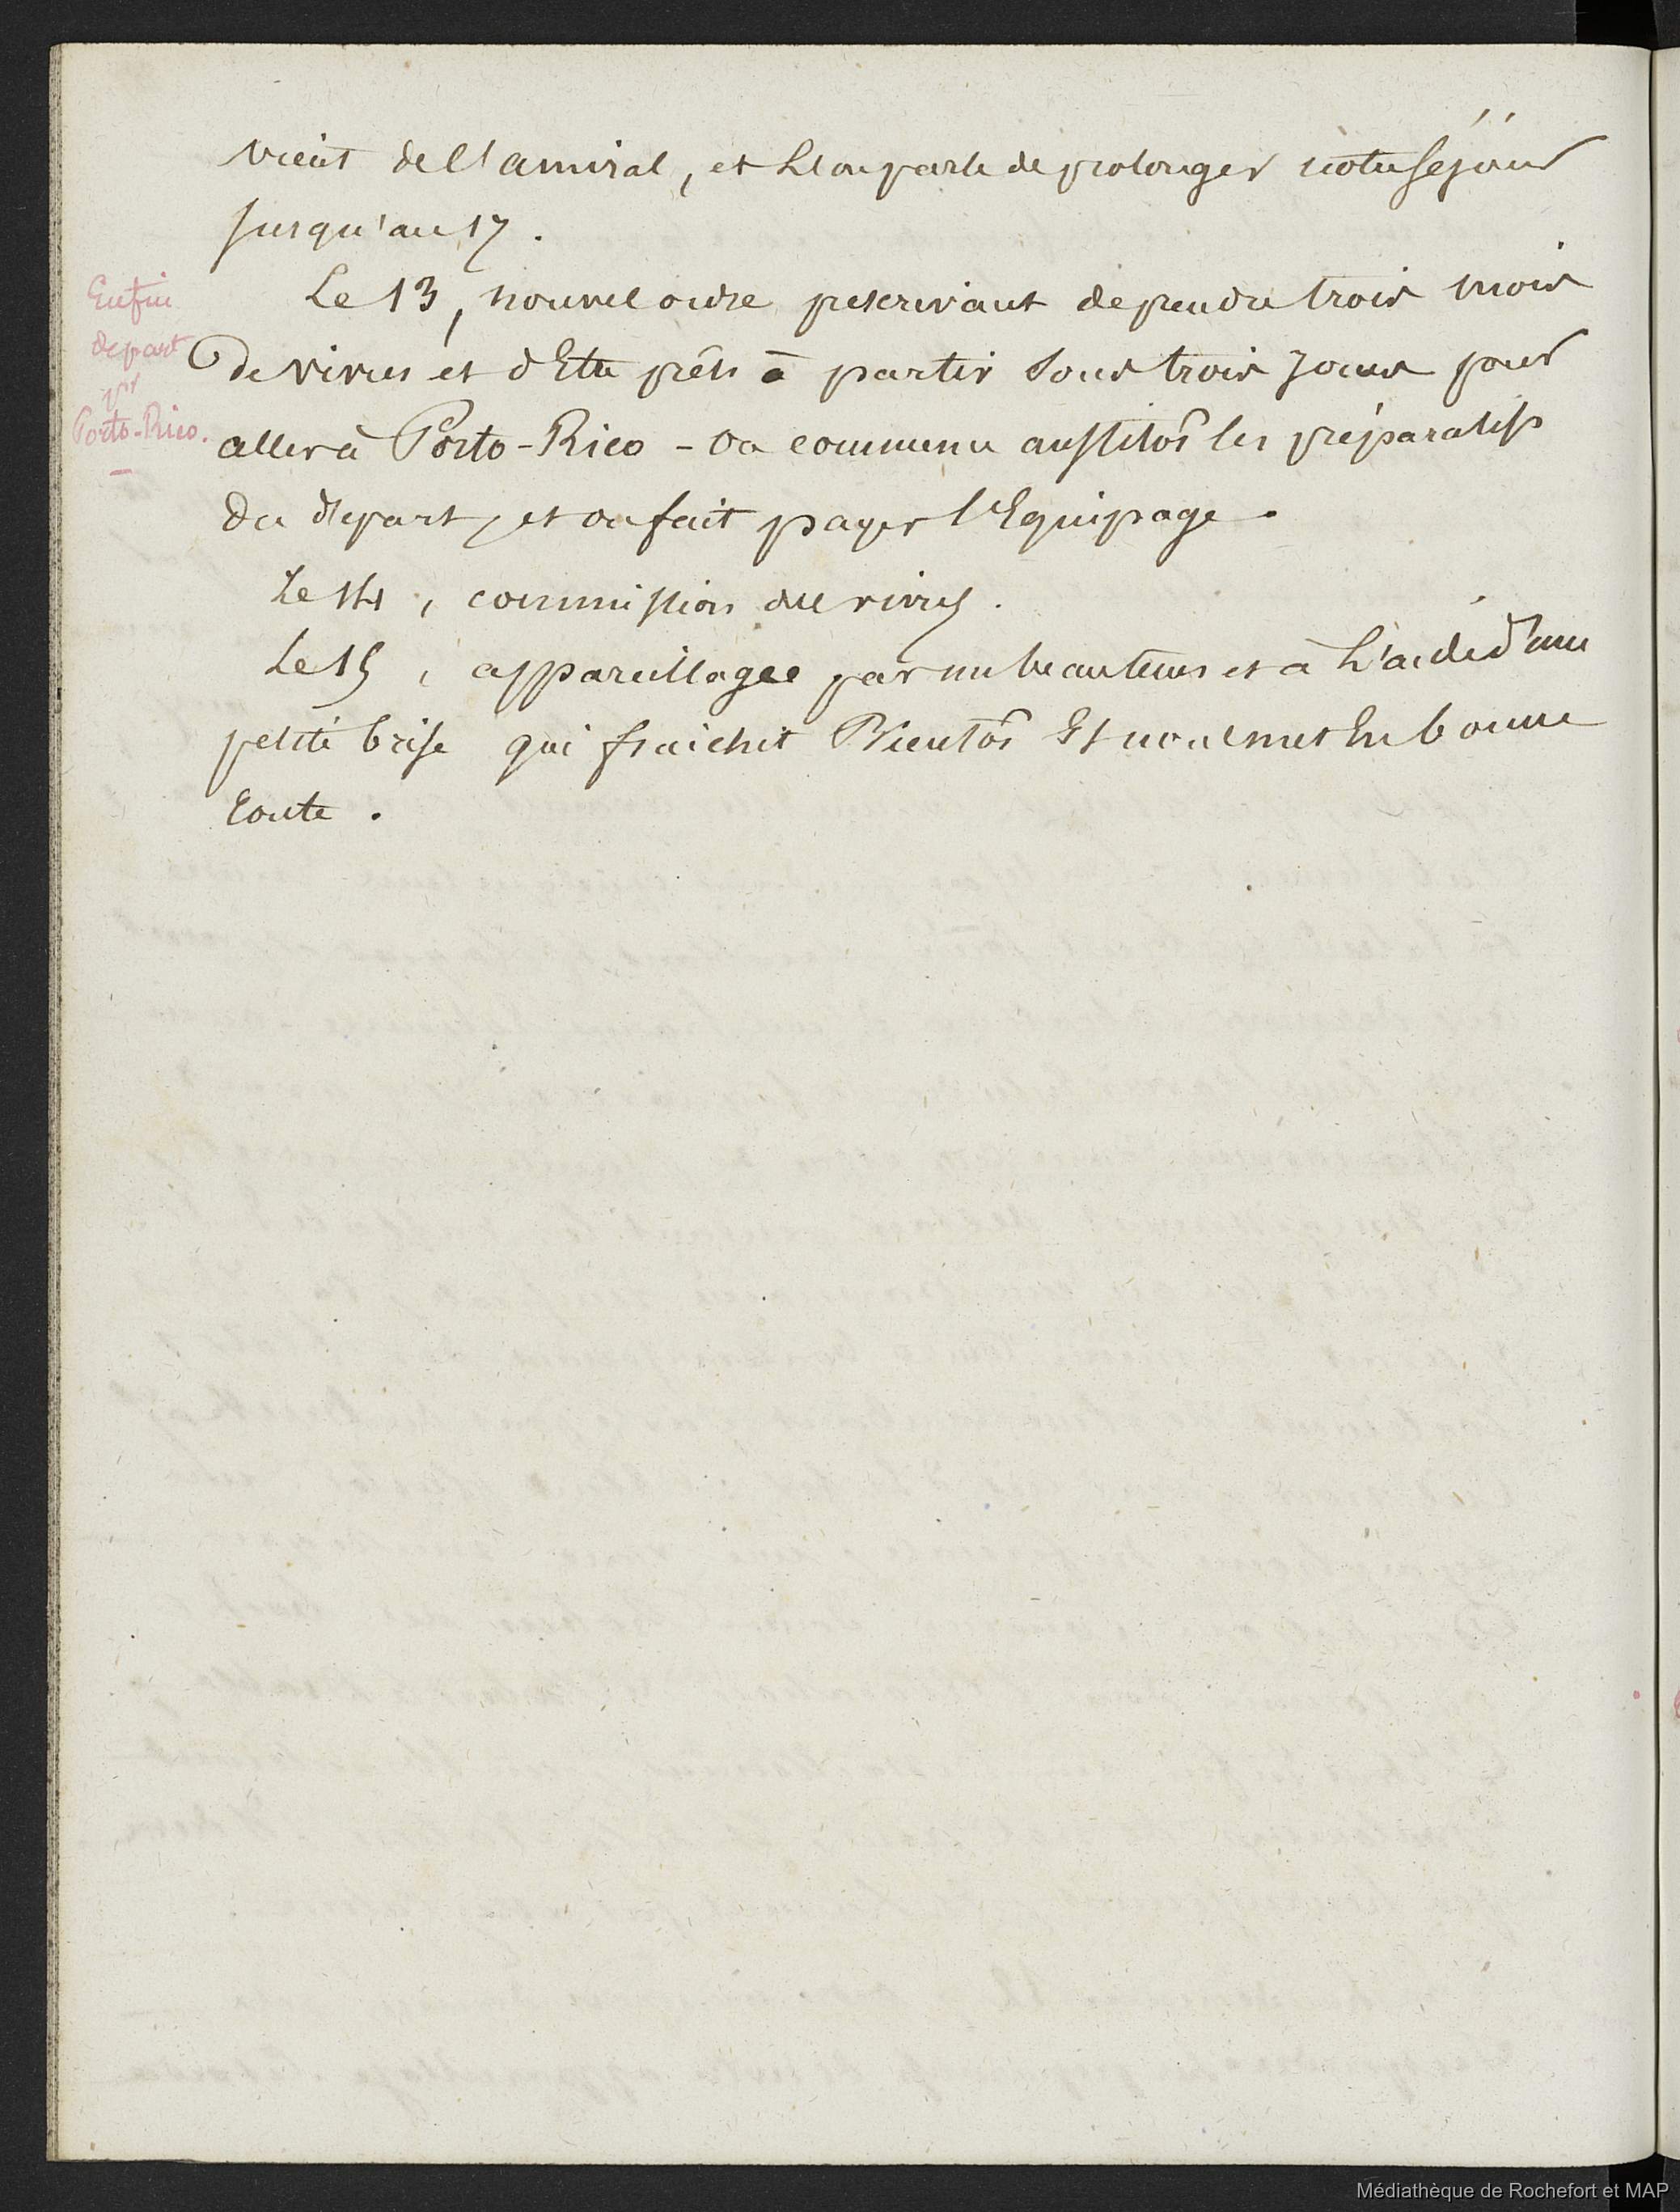 vient de l'amiral, et l'on parle de prolonger notre séjour
jusqu'au 17.
Enfin
depart
pr
Porto-Rico.
Le 13, nouvel ordre prescrivant de prendre trois mois
de vivres et d'Etre prêts à partir sous trois jours pour
aller à Porto-Rico - On commence aussitôt les préparatifs
du départ, et on fait payer l'Equipage.
Le 14, commission des vivres.
Le 15, appareillage par un beau tems et à l'aide d'une
petite brise qui fraichit Bientôt Et nous met En bonne
Route.
Médiathèque de Rochefort et MAP